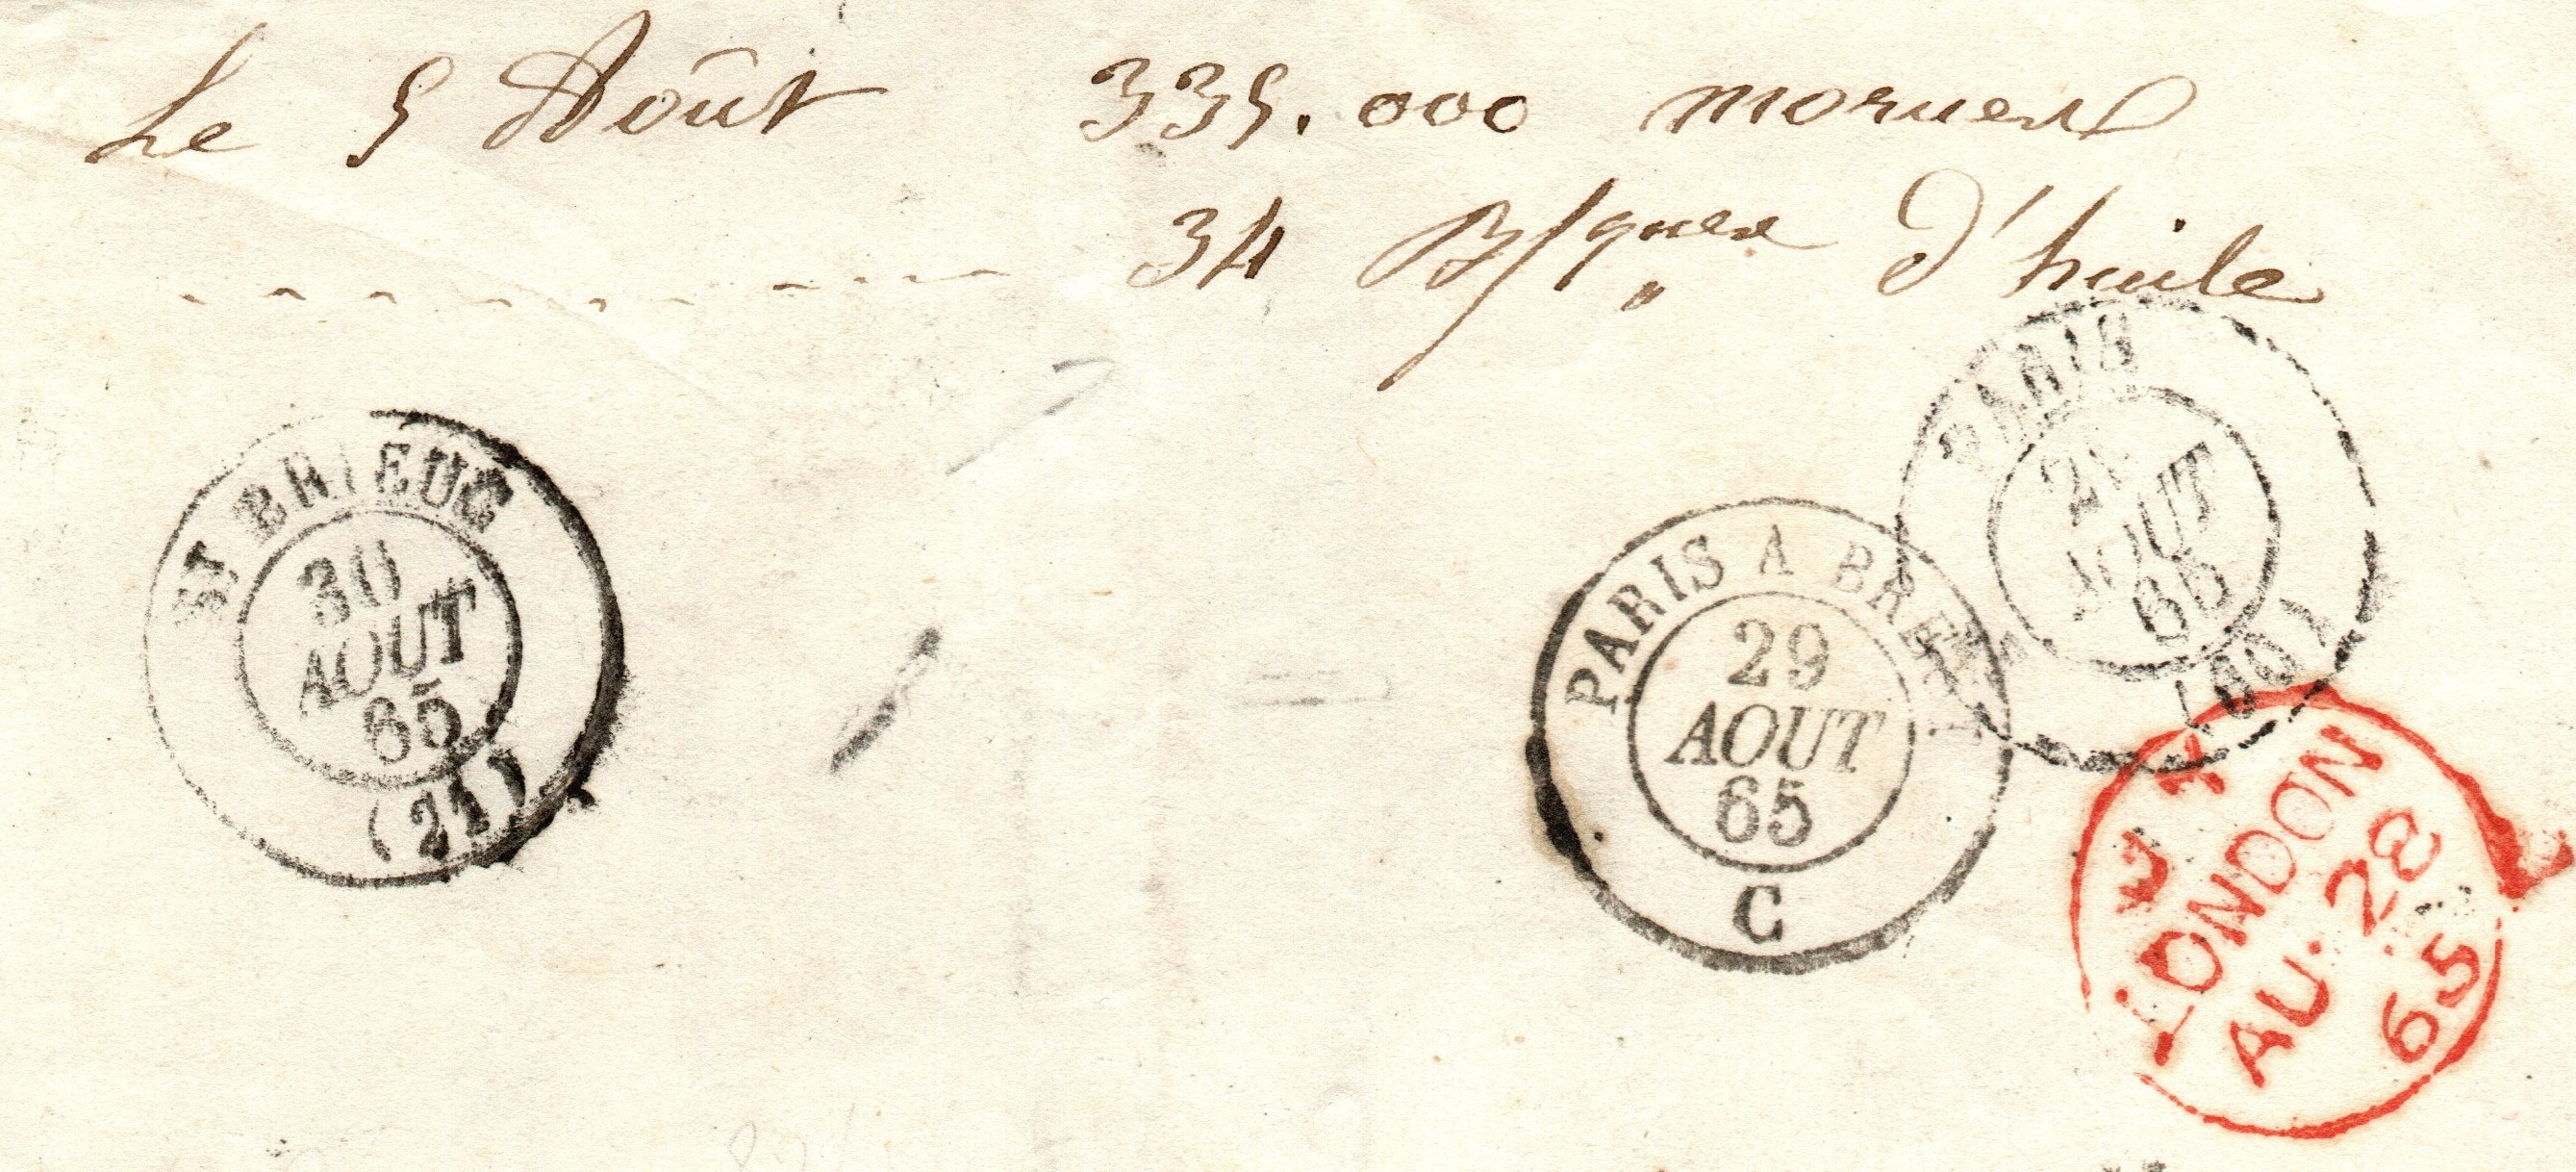 Le 5 Août 335.000 morues
34 B/ques d'huile
ST BRIEUC
30
AOUT
65
(21)
PARIS A BREST
29
AOUT
65
C
PARIS
AOUT
65
(60)
LONDON
AU. 28
65